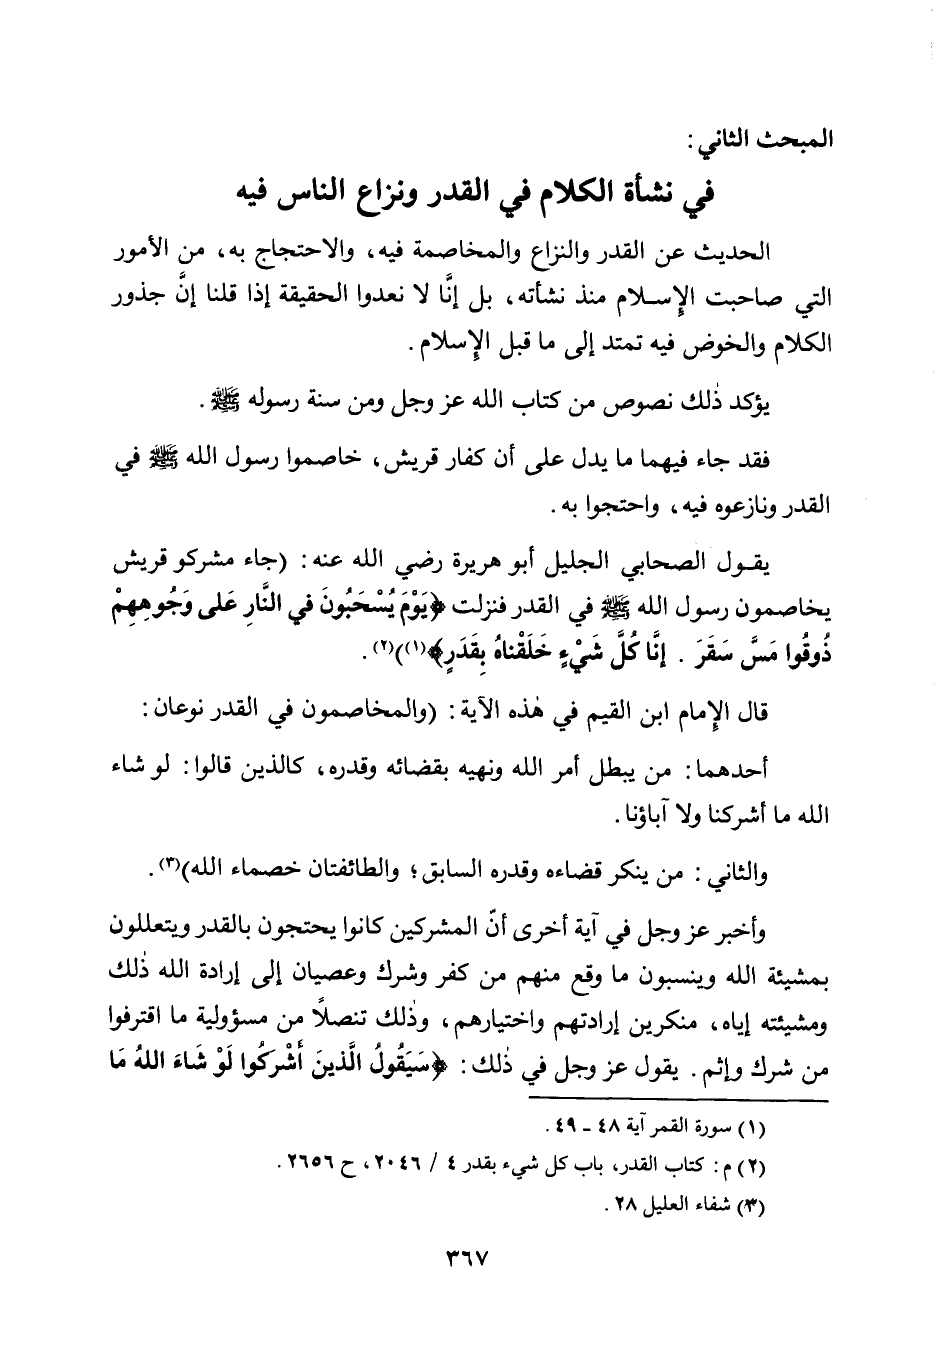 المبحث الثاني:
في نشأة الكلام في القدر ونزاع الناس فيه
الحديث عن القدر والنزاع والمخاصمة فيه، والاحتجاج به، من الأمور
التي صاحبت الإسلام منذ نشأته، بل إنَّا لا نعدوا الحقيقة إذا قلنا إنَّ جذور
الكلام والخوض فيه تمتد إلى ما قبل الإسلام.
يؤكد ذٰلك نصوص من كتاب الله عز وجل ومن سنة رسوله ﷺ.
فقد جاء فيهما ما يدل على أن كفار قريش، خاصموا رسول الله ﷺ في
القدر ونازعوه فيه، واحتجوا به.
يقول الصحابي الجليل أبو هريرة رضي الله عنه: (جاء مشركو قريش
يخاصمون رسول الله ﷺ في القدر فنزلت ﴿يَوْمَ يُسْحَبُونَ في النَّارِ عَلى وَجُوهِهِمْ
ذُوقُوا مَسَّ سَقَرَ . إنَّا كُلَّ شَيْءٍ خَلَقْناهُ بِقَدَرٍ﴾(١))(٢).
قال الإمام ابن القيم في هٰذه الآية: (والمخاصمون في القدر نوعان:
أحدهما: من يبطل أمر الله ونهيه بقضائه وقدره، كالذين قالوا: لو شاء
الله ما أشركنا ولا آباؤنا.
والثاني: من ينكر قضاءه وقدره السابق؛ والطائفتان خصماء الله)(٣).
وأخبر عز وجل في آية أخرى أنّ المشركين كانوا يحتجون بالقدر ويتعللون
بمشيئة الله وينسبون ما وقع منهم من كفر وشرك وعصيان إلى إرادة الله ذٰلك
ومشيئته إياه، منكرين إرادتهم واختيارهم، وذٰلك تنصلاً من مسؤولية ما اقترفوا
من شرك وإثم. يقول عز وجل في ذٰلك: ﴿سَيَقُولُ الَّذينَ أَشْرَكُوا لَوْ شَاءَ اللهُ مَا
(١) سورة القمر آية ٤٨ - ٤٩.
(٢) م: كتاب القدر، باب كل شيء بقدر ٤ / ٢٠٤٦، ح ٢٦٥٦.
(٣) شفاء العليل ٢٨.
٣٦٧